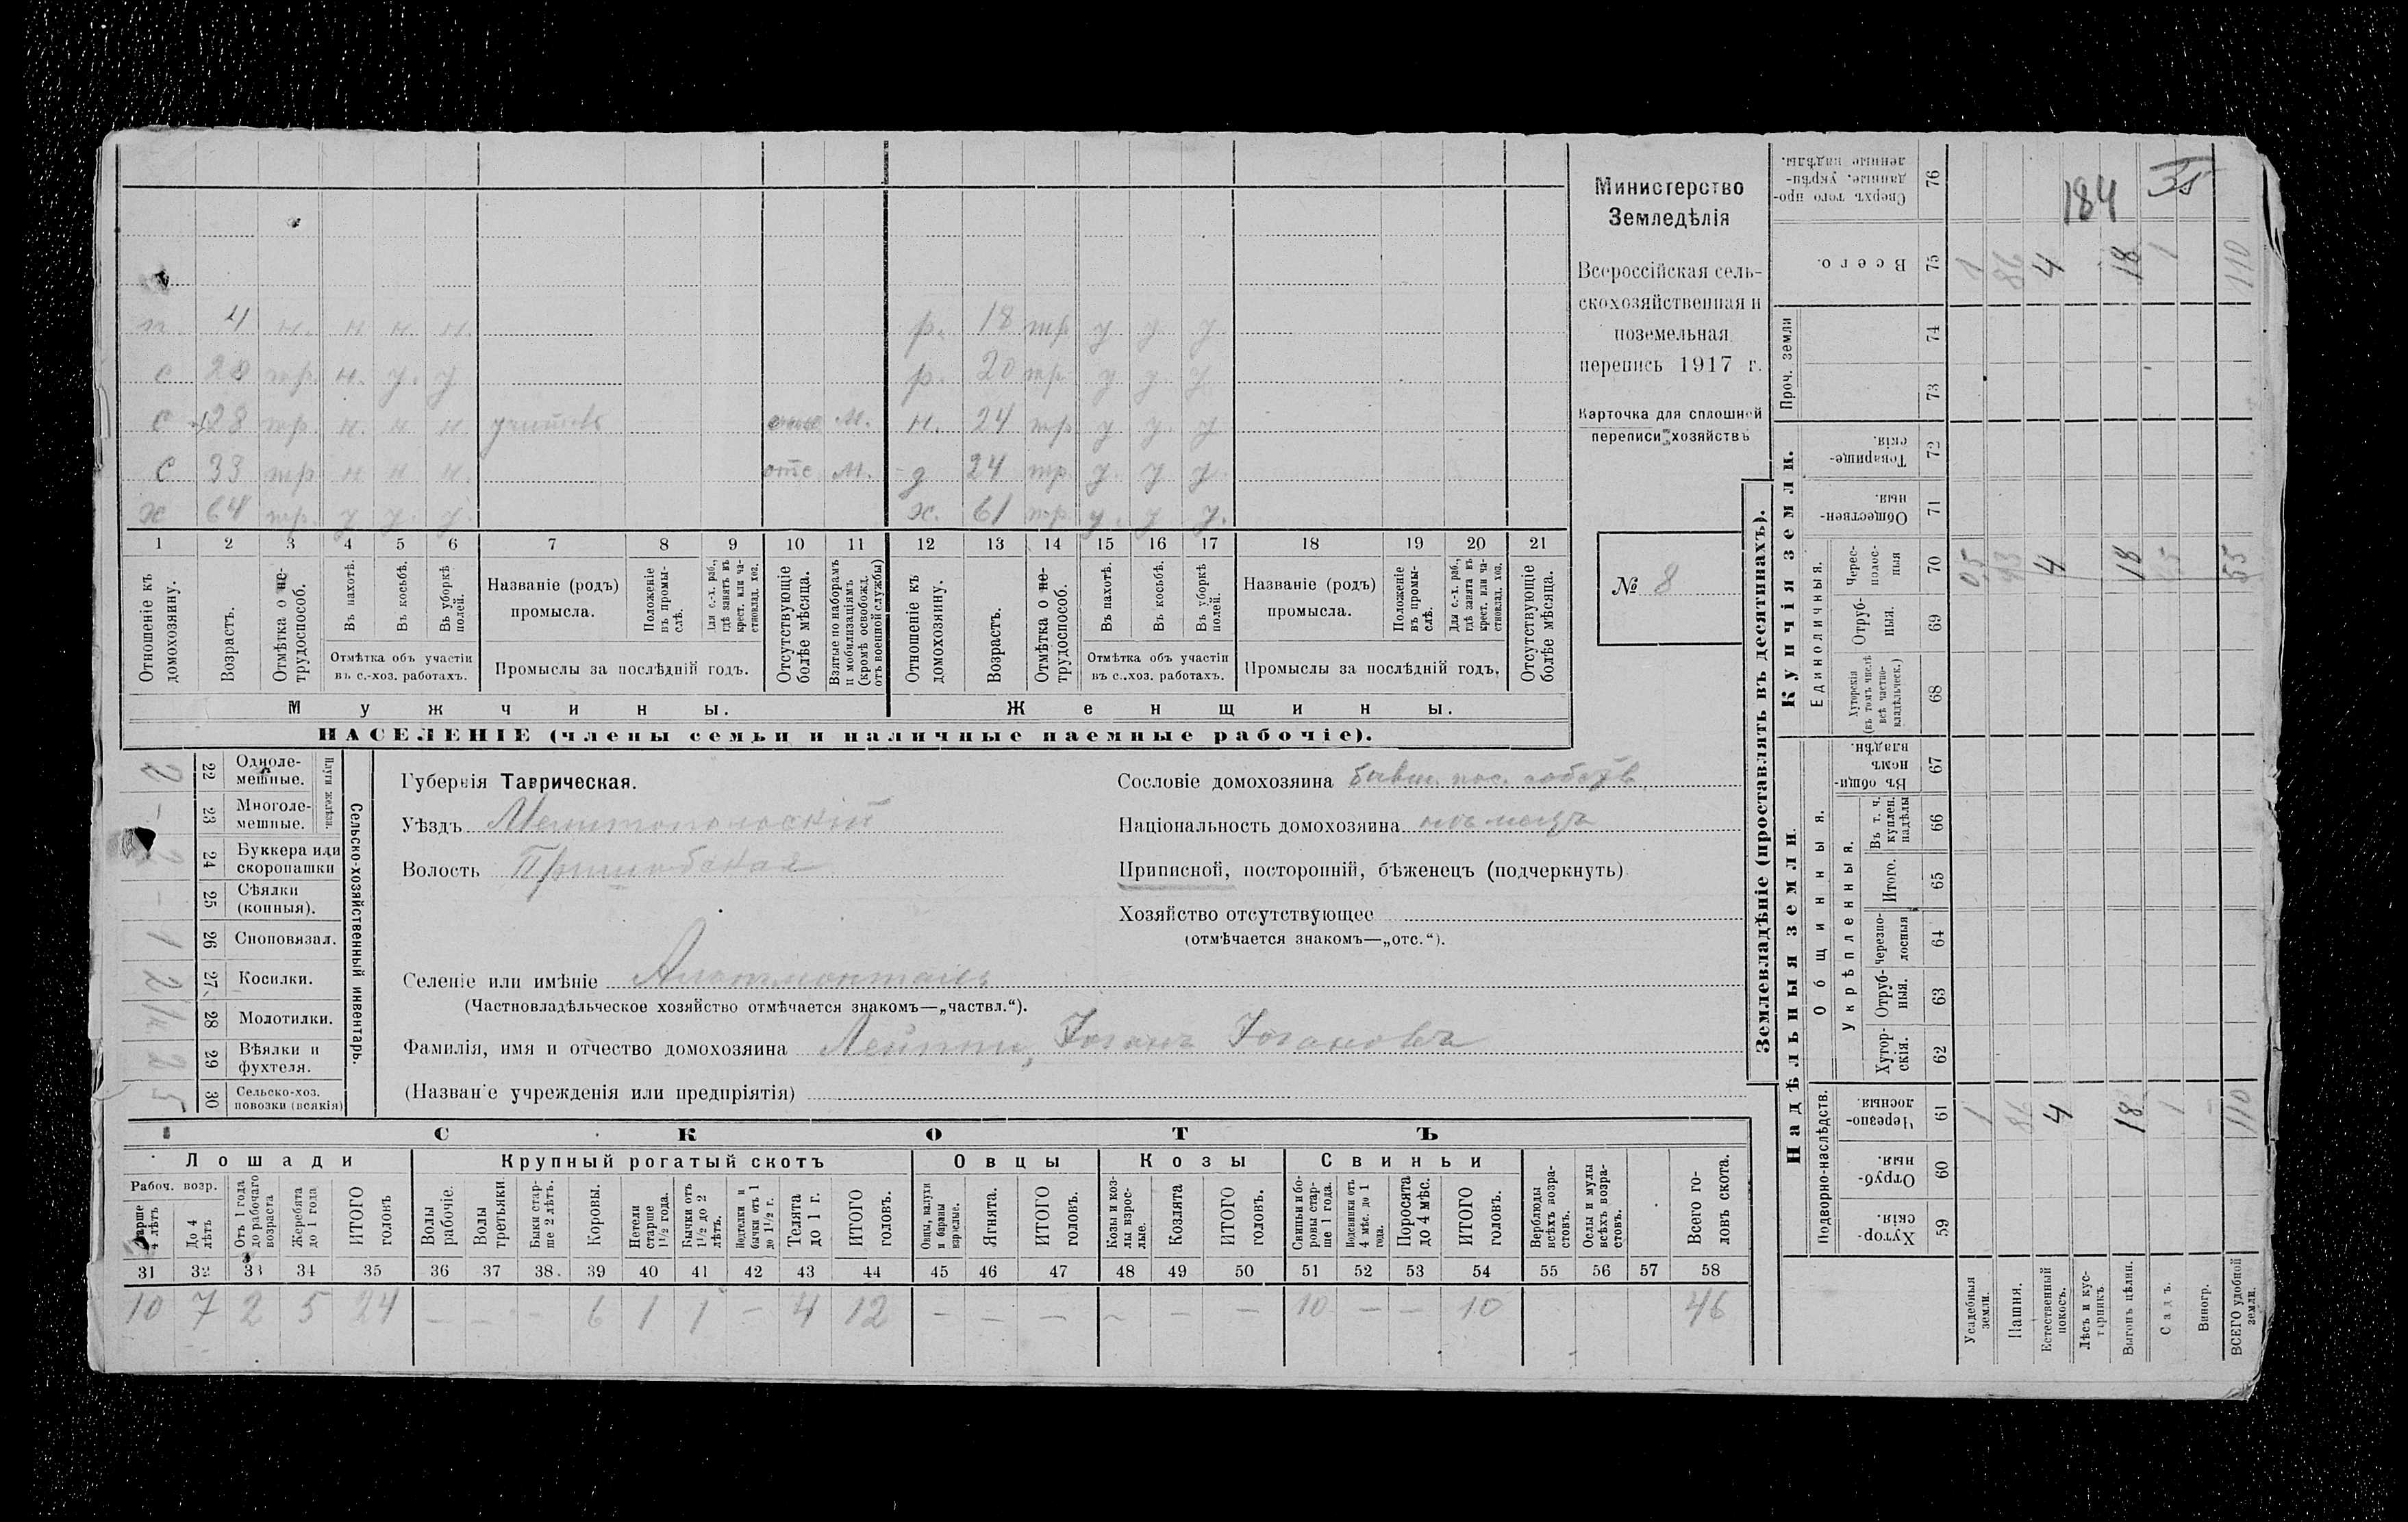 п. 4 н. н н н. р. 18 тр у. у. у.
с 28 тр. н. у. у р. 20 тр. у. у. у
с 28 тр. н. н н М. н. 24 тр. у. у. у
с 33 тр н н н. отс М. д 24 тр у. у у.
х 64 тр. у у. у. х. 61 тр у. у у.
1 2 3 4 5 6 7 8 9 10 11 12 13 14 15 16 17 18 19 20 21
Отношеніе къ домохозяину.
Возрастъ.
Отмѣтка о не-трудоспособ.
Въ пахотѣ.
Въ косьбѣ.
Въ уборкѣ полей.
Отмѣтка объ участіи въ с.-хоз. работахъ.
Названіе (родъ) промысла.
Положеніе въ промы-слѣ.
Для с.-х. раб., гдѣ занятъ въ крест. или ча-стновлад. хоз.
Промыслы за послѣдній годъ.
Отсутствующіе болѣе мѣсяца.
Взятые по наборамъ и мобилизаціямъ (кромѣ освобожд. отъ военной службы)
Отношеніе къ домохозяину.
Возрастъ.
Отмѣтка о не-трудоспособ.
Въ пахотѣ.
Въ косьбѣ.
Въ уборкѣ полей.
Отмѣтка объ участіи въ с.-хоз. работахъ.
Названіе (родъ) промысла.
Положеніе въ промы-слѣ.
Для с.-х. раб., гдѣ занята въ крест. или ча-стновлад. хоз.
Промыслы за послѣдній годъ.
Отсутствующіе болѣе мѣсяца.
Мужчины.
Женщины.
НАСЕЛЕНІЕ (члены семьи и наличные наемные рабочіе).
Министерство
Земледѣлія
Всероссійская сель-
скохозяйственная и
поземельная
перепись 1917 г.
Карточка для сплошной
переписи хозяйствъ
№ 8
Сельско-хозяйственный инвентарь.
Плуги желѣзн.
22 Одноле-мешные. 2
23 Многоле-мешные. –
24 Буккера или скоропашки
25 Сѣялки (конныя). –
26 Сноповязал. 1
27 Косилки. 2
28 Молотилки.
29 Вѣялки и фухтеля. 2
30 Сельско-хоз. повозки (всякія) 5
Губернія Таврическая.
Уѣздъ Мелитопольскій
Волость Пришибская
Сословіе домохозяина бывш. пос. собств.
Національность домохозяина нѣмецъ
Приписной, посторонній, бѣженецъ (подчеркнуть)
Хозяйство отсутствующее
(отмѣчается знакомъ—„отс.“).
Селеніе или имѣніе Альтмонталь
(Частновладѣльческое хозяйство отмѣчается знакомъ—„частвл.“).
Фамилія, имя и отчество домохозяина Іоганъ Іогановъ
(Названіе учрежденія или предпріятія)
СКОТЪ
Лошади
Крупный рогатый скотъ
Овцы
Козы
Свиньи
Рабоч. возр.
Старше 4 лѣтъ
До 4 лѣтъ
Отъ 1 года до рабочаго возраста
Жеребята до 1 года
ИТОГО головъ
Волы рабочіе.
Волы третьяки.
Быки стар-ше 2 лѣтъ.
Коровы.
Нетели старше 1½ года.
Бычки отъ 1½ до 2 лѣтъ.
Подтелки и бычки отъ 1 до 1½ г.
Телята до 1 г.
ИТОГО головъ.
Овцы, валухи и бараны взрослые.
Ягнята.
ИТОГО головъ.
Козы и коз-лы взрос-лые.
Козлята
ИТОГО головъ.
Свиньи и бо-ровы стар-ше 1 года.
Подсвинки отъ 4 мѣс. до 1 года.
Поросята до 4 мѣс.
ИТОГО головъ.
Верблюды всѣхъ возра-стовъ.
Ослы и мулы всѣхъ возра-стовъ.
Всего го-ловъ скота.
31 32 33 34 35 36 37 38. 39 40 41 42 43 44 45 46 47 48 49 50 51 52 53 54 55 56 57 58
10 7 2 5 24 – – – 6 1 1 – 4 12 – – – – – – 10 – – 10 46
Землевладѣніе (проставлять въ десятинахъ).
Купчія земли.
Надѣльныя земли
76 Сверхъ того про-данные. укрѣп-ленные надѣлы. 184
75 Всего. 1 86 4 18 1 110
Проч. земли
74
73
72 Товарище-скія.
71 Обществен-ныя.
Единоличныя.
70 Черес-полос-ныя 0,5 4 18 55
69 Отруб-ныя.
68 Хуторскія (въ томъ числѣ всѣ частно-владѣльческ.)
67 Въ общи-номъ владѣн.
Общинныя.
Укрѣпленныя.
66 Въ т. ч. куплен. надѣлы
65 Итого.
64 черезпо-лосныя
63 Отруб-ныя.
62 Хутор-скія.
Подворно-наслѣдств.
61 Черезпо-лосныя. 1 86 4 18 1 110
60 Отруб-ныя.
59 Хутор-скія.
Усадебныя земли.
Пашня.
Естественный покосъ.
Лѣсъ и кус-тарникъ.
Выгонъ цѣлин.
Садъ.
Виногр.
ВСЕГО удобной земли.